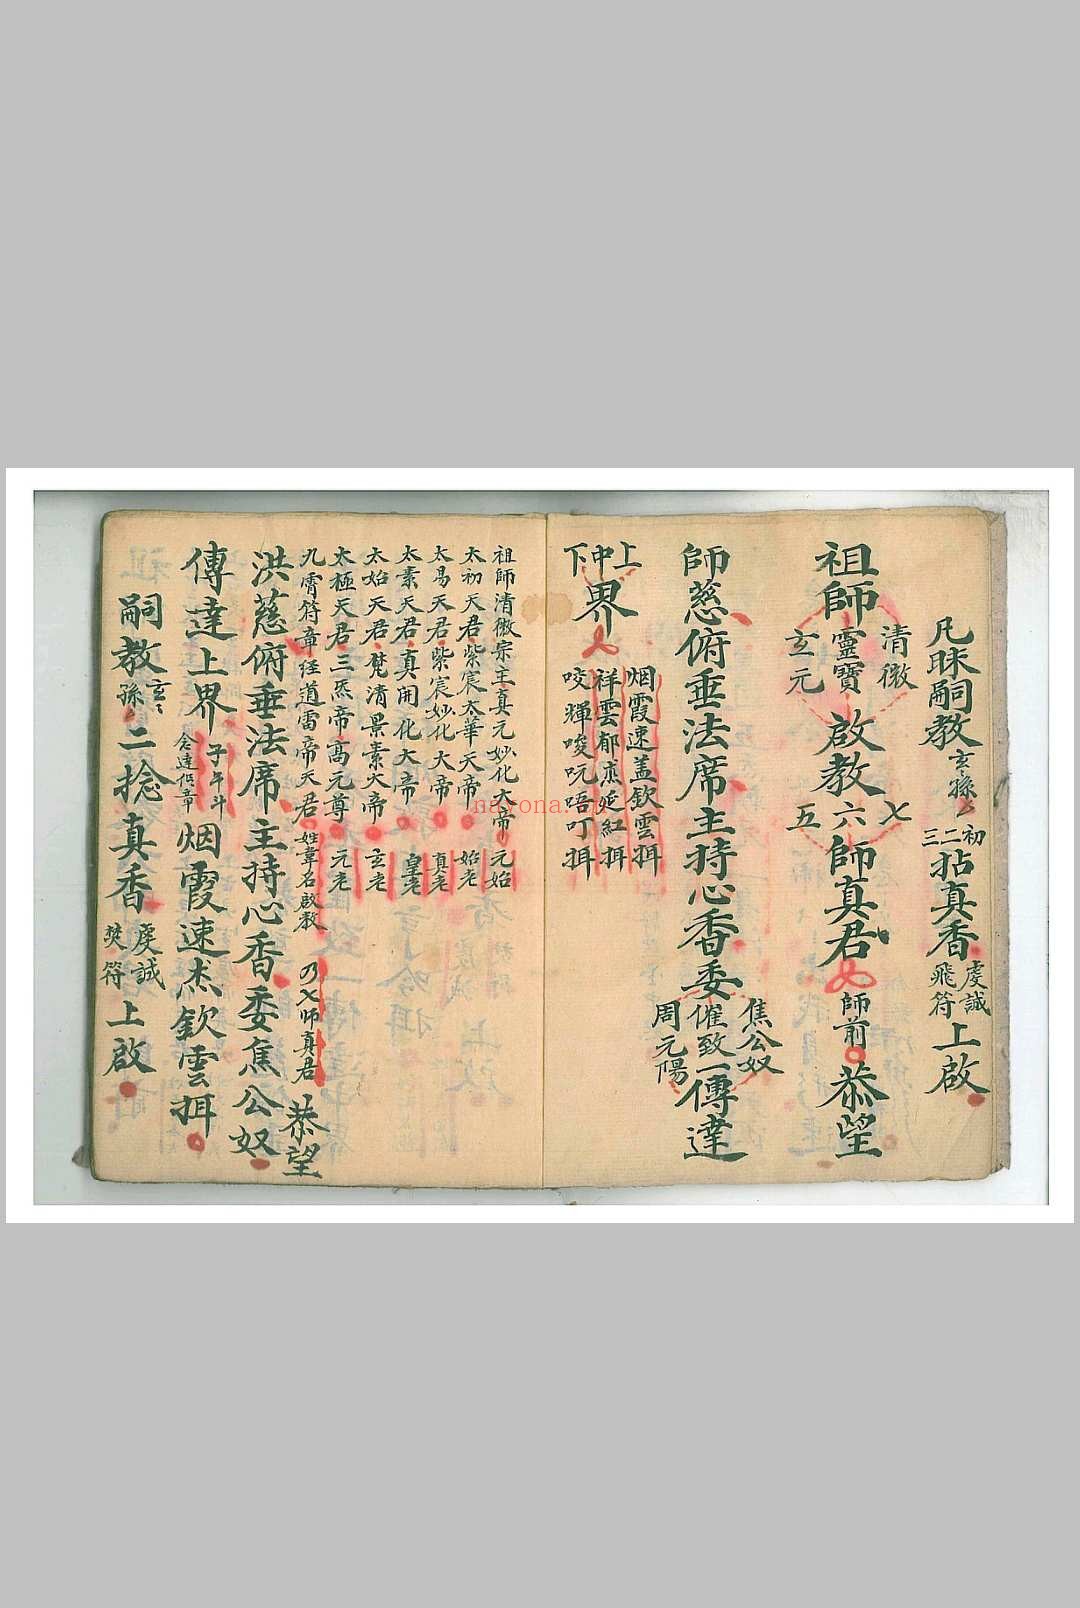 凡昧嗣教玄孫初二三拈真香虔誠飛符上啟
祖師清微靈寶玄元啟教七六五師真君師前恭望
師慈俯垂法席主持心香委焦公奴周元陽催致一傳達
上中下界烟霞速盖欽雲挕
祥雲郁𤇆延紅挕
咬輝唆吭唔叮挕
祖師清微宗主真元妙化大帝元始
太初天君紫宸太華天帝始老
太易天君紫宸妙化大帝真老
太素天君真開化大帝皇老
太始天君梵清景素大帝玄老
太極天君三炁帝高元尊元老
九霄符章经道雷帝天君姓韋名啟教乃七師真君恭望
洪慈俯垂法席主持心香委焦公奴
傳達上界子午斗烟霞速杰欽雲挕
嗣教玄孫二捻真香虔誠焚符上啟
nayona.cn